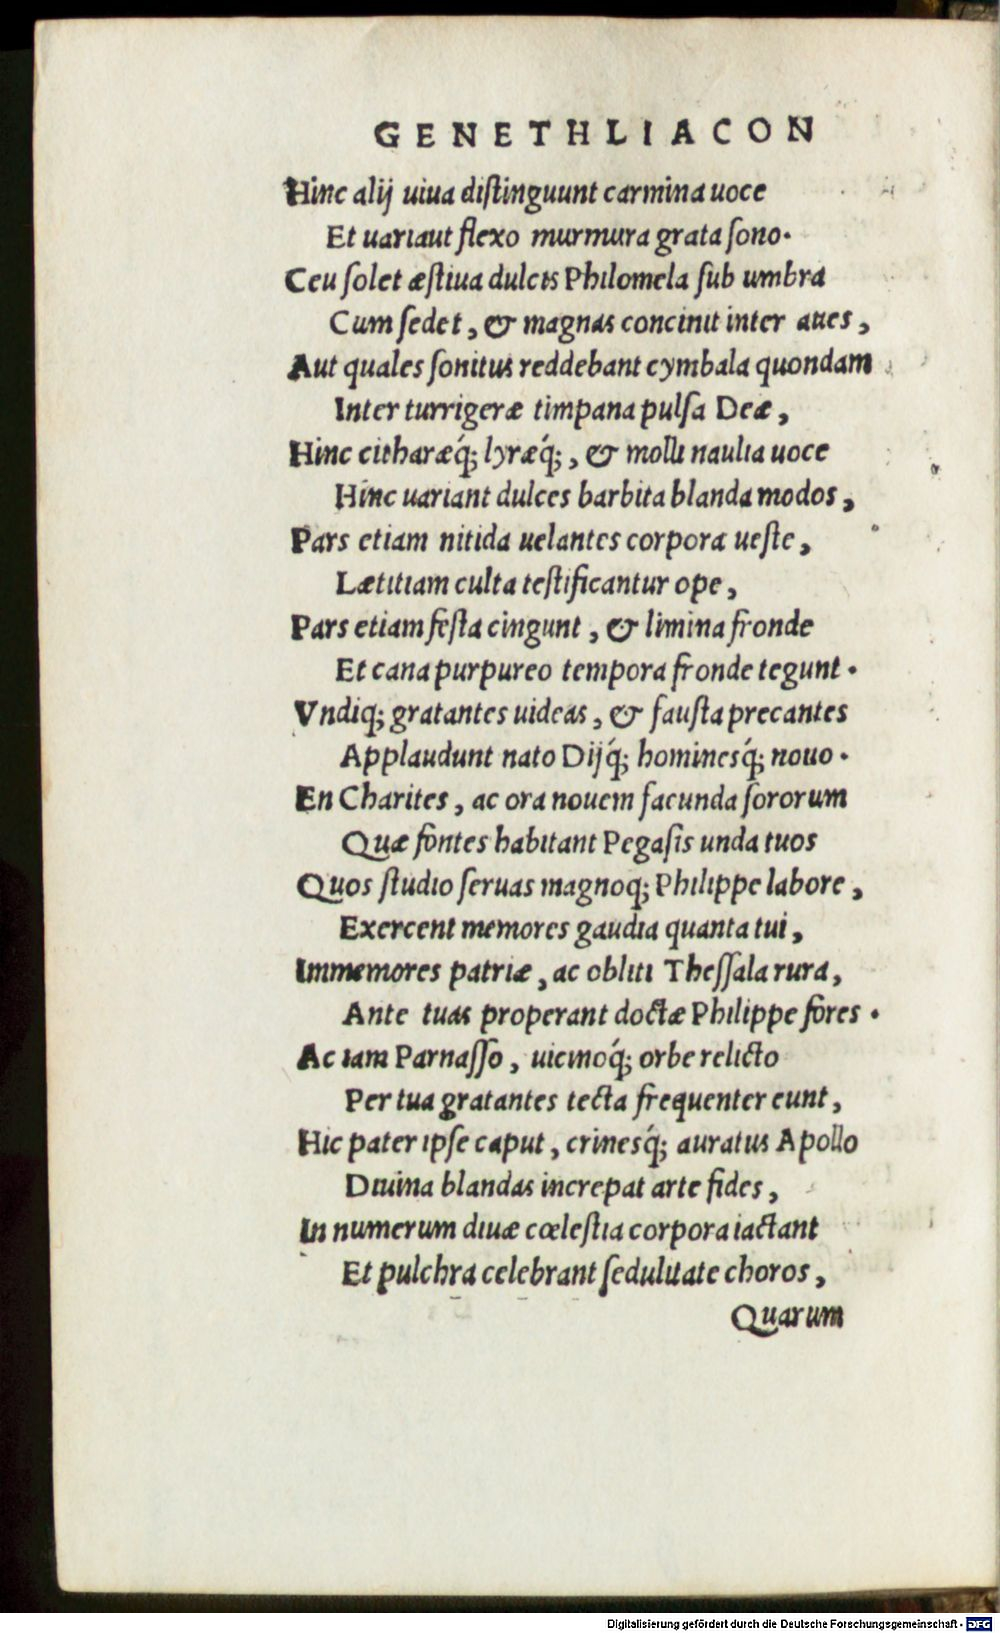 GENETHLIACON
Hinc alij uiua diſtinguunt carmina uoce
Et uariaut flexo murmura grata ſono.
Ceu ſolet æſtiua dulcis Philomela ſub umbra
Cum ſedet, & magnas concinit inter aues,
Aut quales ſonitus reddebant cymbala quondam
Inter turrigeræ timpana pulſa Deæ,
Hinc citharæq́; lyræq́;, & molli naulia uoce
Hinc uariant dulces barbita blanda modos,
Pars etiam nitida uelantes corpora ueſte,
Lætitiam culta teſtificantur ope,
Pars etiam feſta cingunt, & limina fronde
Et cana purpureo tempora fronde tegunt.
Vndiq; gratantes uideas, & fauſta precantes
Applaudunt nato Dijq́; hominesq́; nouo.
En Charites, ac ora nouem facunda ſororum
Quæ fontes habitant Pegaſis unda tuos
Quos ſtudio ſeruas magnoq; Philippe labore,
Exercent memores gaudia quanta tui,
Immemores patriæ, ac obliti Theſſala rura,
Ante tuas properant doctæ Philippe fores.
Ac iam Parnaſſo, uicinoq́; orbe relicto
Per tua gratantes tecta frequenter eunt,
Hic pater ipſe caput, crinesq́; auratus Apollo
Diuina blandas increpat arte fides,
In numerum diuæ cœleſtia corpora iactant
Et pulchra celebrant ſedulitate choros,
Quarum
Digitalisierung gefördert durch die Deutsche Forschungsgemeinschaft - DFG